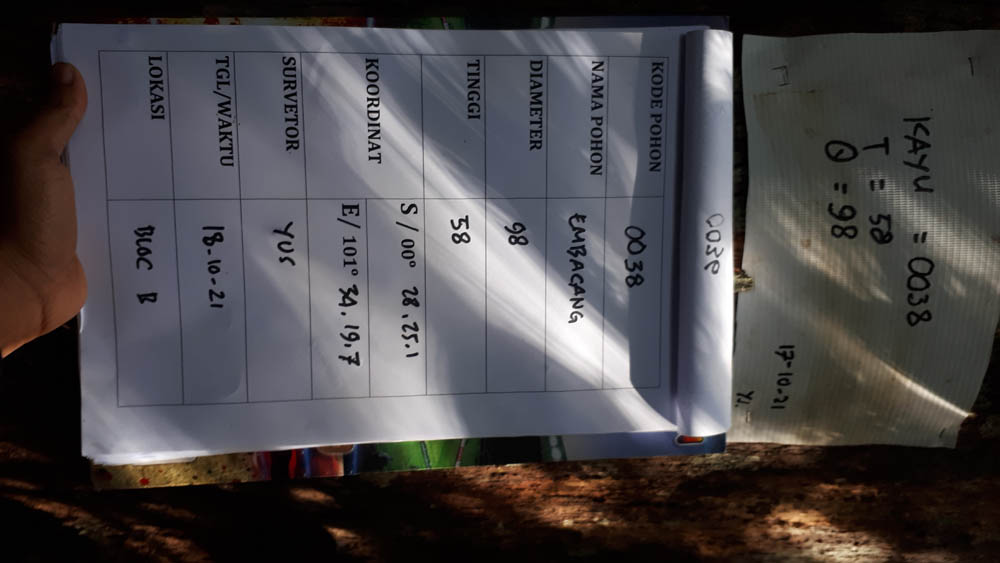 KAYU = 0038
T = 58
Q = 98
17-10-21
YS.
0039
KODE POHON 0038
NAMA POHON EMBACANG
DIAMETER 98
TINGGI 58
KOORDINAT S / 00° 28.25.1
E/ 101° 34.19.7
SURVETOR YUS
TGL/WAKTU 18-10-21
LOKASI BLOC B